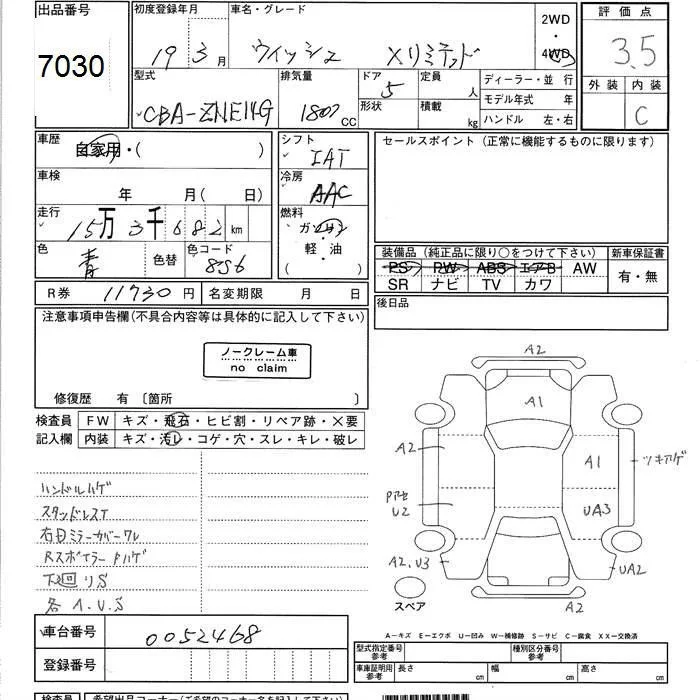 出品番号
7030
初度登録年月
19 3月
車名・グレード
ウィッシュ Xリミテッド
2WD
・
4WD
評価点
3.5
外装 内装
C
型式
CBA-ZNE14G
排気量
1800 CC
ドア
5
形状
定員
人
積載
kg
ディーラー・並 行
モデル年式 年
ハンドル 左・右
車歴
自家用・( )
車検
年 月( 日)
走行
15万3千682km
色
青
色替
色コード
8S6
シフト
IAT
冷房
AAC
燃料
ガソリン
軽・油
( )
セールスポイント(正常に機能するものに限ります)
装備品(純正品に限り○をつけて下さい)
PS PW ABS エアB AW
SR ナビ TV カワ
新車保証書
有・無
後日品
R券 11730円
名変期限 月 日
注意事項申告欄(不具合内容等は具体的に記入して下さい)
ノークレーム車
no claim
修復歴 有〔箇所 〕
検査員 FW キズ・飛石・ヒビ割・リペア跡・X要
記入欄 内装 キズ・汚レ・コゲ・穴・スレ・キレ・破レ
ハンドルハゲ
スタッドレスT
右Dミラーカバーワレ
Rスポイラー ハゲ
下回りS
各A.U.S
A2
A1
A2
A1
ツキアゲ
U2
UA3
A2,U3
UA2
A2
スペア
車台番号 0052468
登録番号
A－キズ E－エクボ U－凹み W－補修跡 S－サビ C－腐食 XX－交換済
型式指定番号
参考
種別区分番号
参考
車庫証明用
参考
長さ cm 幅 cm 高さ cm
検査員 希望出品コーナー(ご希望のコーナー名を記入して下さい)